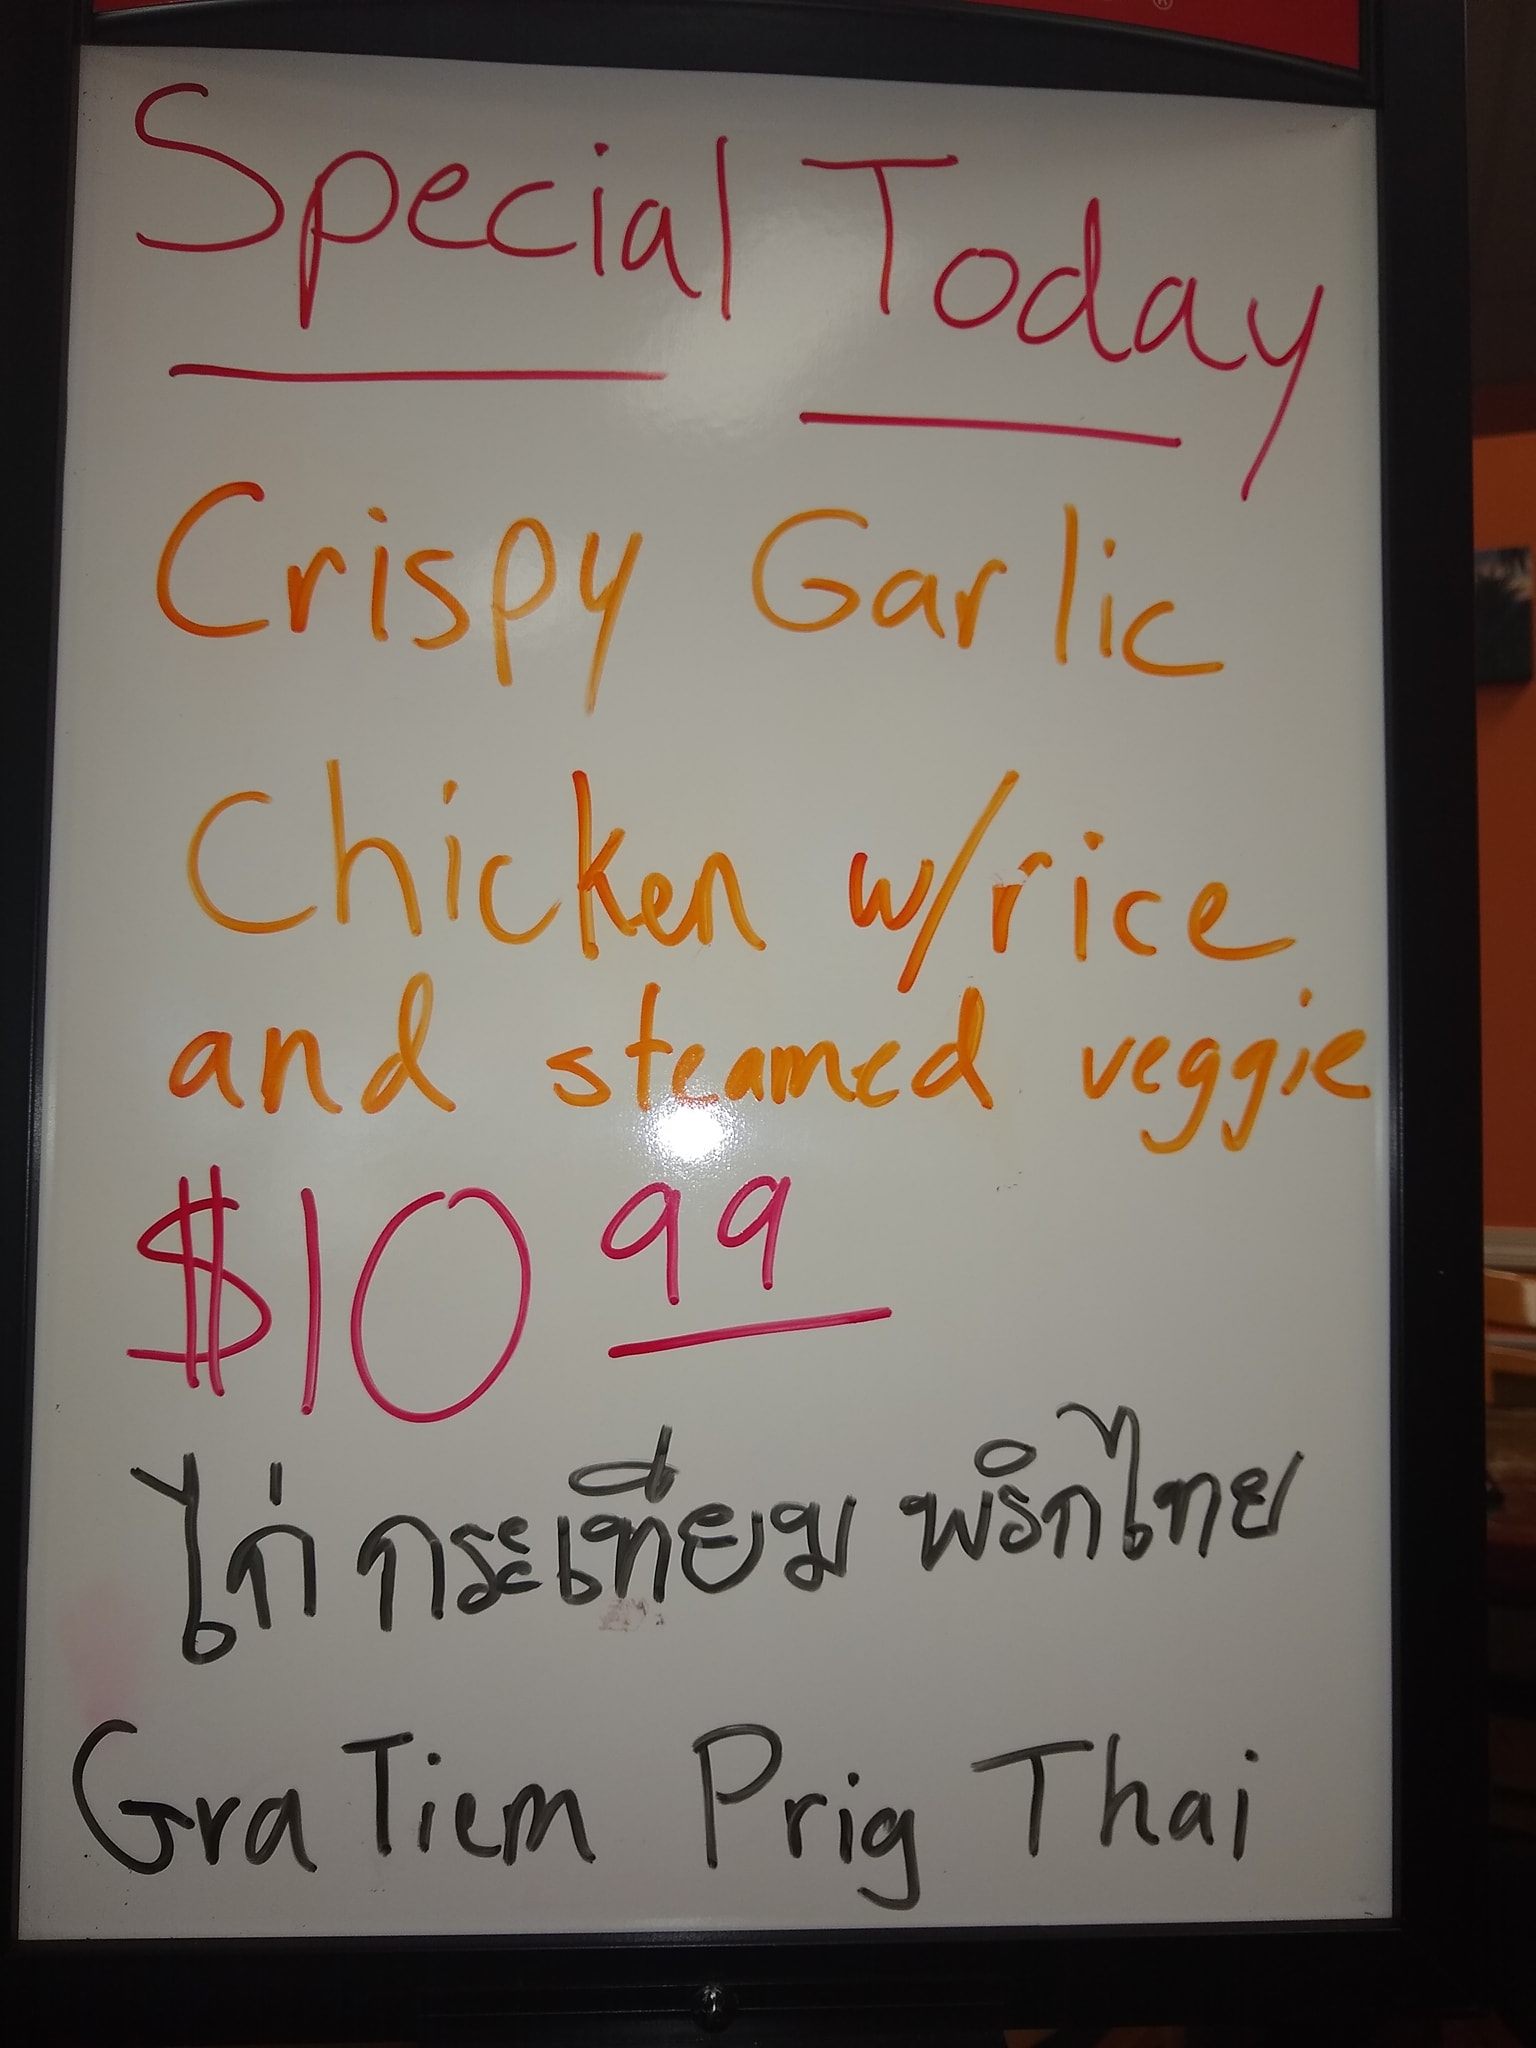 Special Today
Crispy Garlic
Chicken w/rice
and steamed veggie
$10 99
ไก่ กระเทียม พริกไทย
Gra Tiem Prig Thai